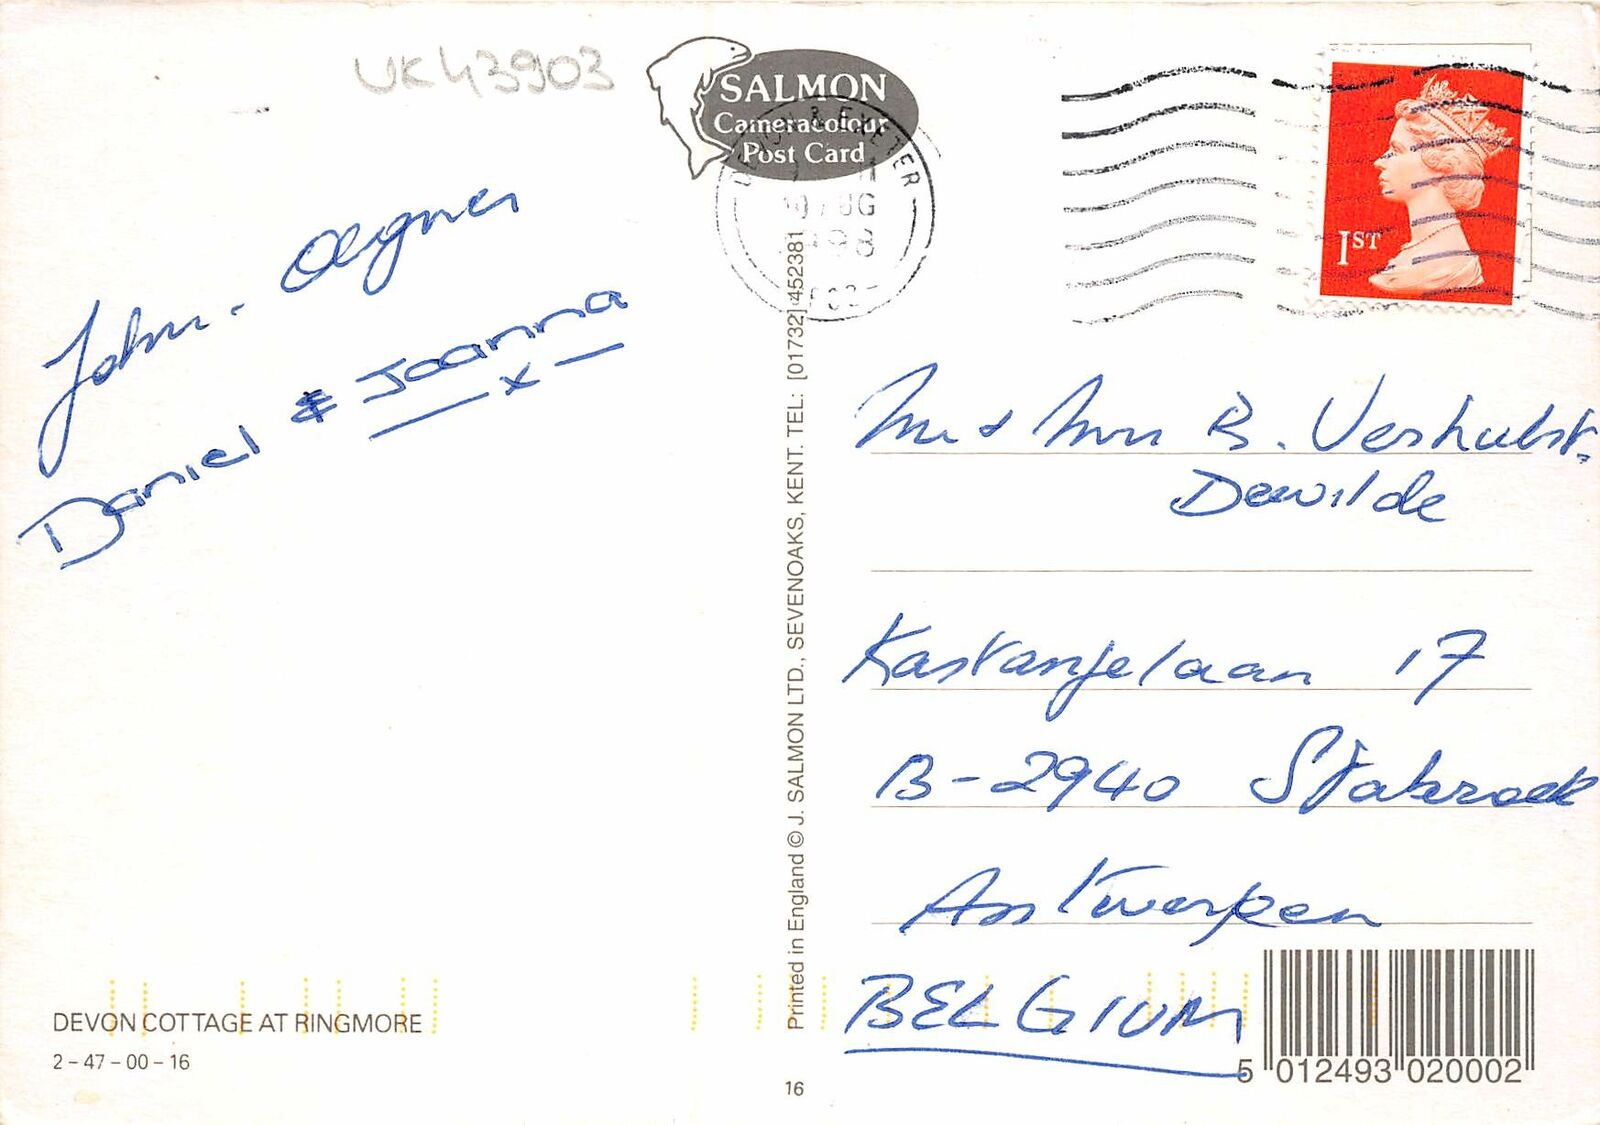 UK43903
SALMON
Cameracolour
Post Card
& EXETER
AUG
1ST
John - Agnes
Daniel & Joanna
x
Mr & Mrs B. Verhulst-
Dewilde
Kastanjelaan 17
B-2940 Stabroek
Antwerpen
BELGIUM
Printed in England © J. SALMON LTD., SEVENOAKS, KENT. TEL: [01732] 452381
DEVON COTTAGE AT RINGMORE
2 - 47 - 00 - 16
16
5 012493 020002